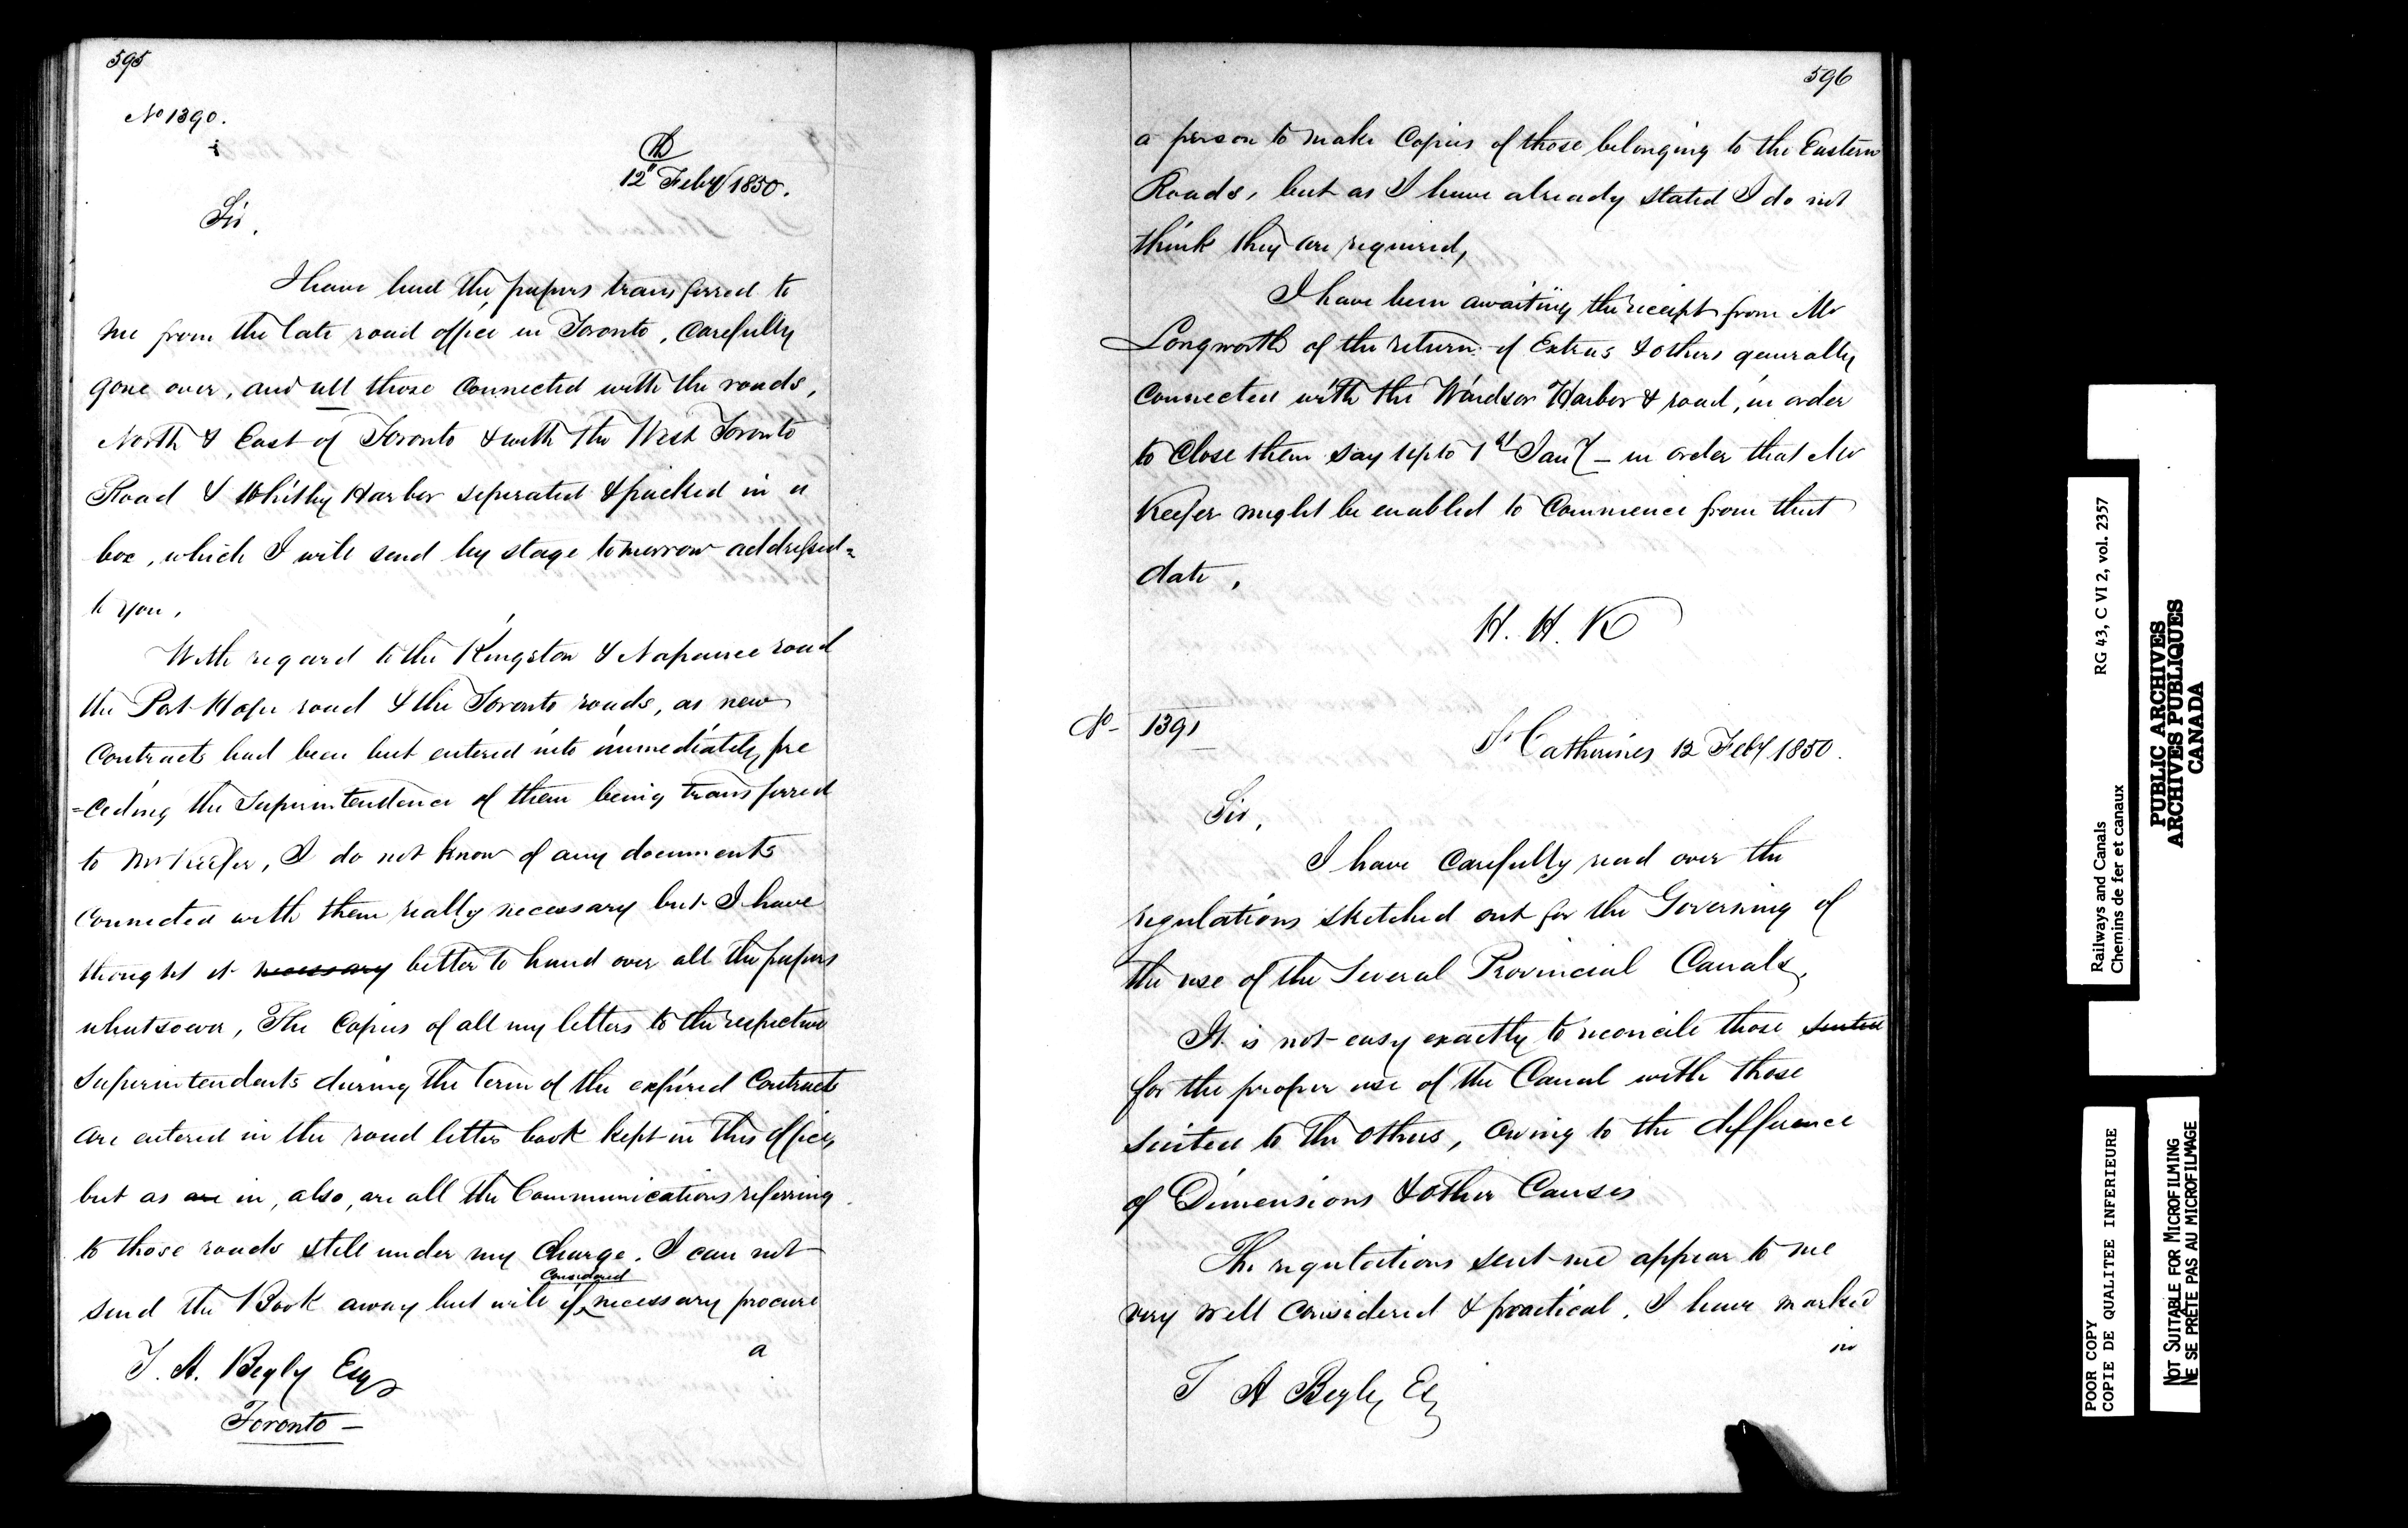 595
No 1390.
12th Feby 1850.
Sir,
I have had the papers transferred to
me from the late road office in Toronto, Carefully
gone over, and all those Connected with the roads,
North & East of Toronto & with the West Toronto
Road & Whitby Harbor seperated & packed in a
box, which I will send by stage tomorrow addressed=
to you,
With regard to the Kingston & Napanee road
the Port Hope road & the Toronto roads, as new
Contracts had been but entered into immediately pre
=ceding the Superintendence of them being transferred
to Mr Keefer, I do not know of any documents
Connected with them really necessary but I have
thought it necessary better to hand over all the papers
whatsoever, The Copies of all my letters to the respective
Superintendents during the term of the expired Contracts
are entered in the road letter book kept in this office,
but as are in, also, are all the Communications referring
to those roads still under my Charge. I can not
Considered
send the Book away but will if necessary procure
a
T. A. Begly Esq
Toronto —
596
a person to make Copies of those belonging to the Eastern
Roads, but as I have already stated I do not
think they are required,
I have been awaiting the receipt from Mr
Longworth of the return of Extras & others generally
Connected with the Windsor Harbor & road, in order
to Close them say up to 1st Jany — in order that Mr
Keefer might be enabled to Commence from that
date,
H. H. K
No - 1391
St Catharines 12 Feby 1850.
Sir,
I have Carefully read over the
regulations sketched out for the Governing of
the use of the Several Provincial Canals,
It is not easy exactly to reconcile those suited
for the proper use of the Canal with those
suited to the others, Owing to the difference
of Dimensions & other Causes
The regulations sent me appear to me
very well Considered & practical. I have marked
in
T A Begly Esq
Railways and Canals
Chemins de fer et canaux
RG 43, C VI 2, vol. 2357
PUBLIC ARCHIVES
ARCHIVES PUBLIQUES
CANADA
POOR COPY
COPIE DE QUALITEE INFERIEURE
NOT SUITABLE FOR MICROFILMING
NE SE PRÊTE PAS AU MICROFILMAGE